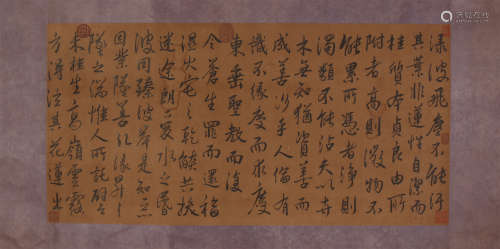 淥波飛塵不能污
其葉非蓮性自潔而
桂質本貞良由所
附者高則微物不
能累所憑者淨則
濁類不能沾夫以卉
木無知猶資善而
成善況乎人倫有
識不緣慶而求慶
東垂聖教而復
全蒼生罪而還福
濕火宅之乾燄共拔
迷途朗愛水之昏
波同臻彼岸是知惡
因業墜善以緣昇昇
墜之端惟人所託譬夫
桂生高嶺雲露
方得泫其花蓮出